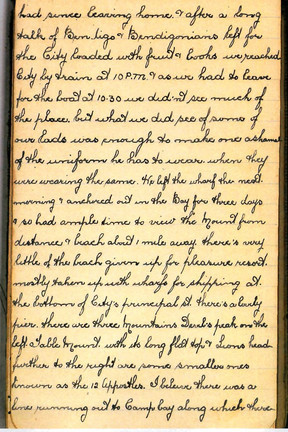 had since leaving home & after a long
talk of Bendigo & Bendigonians left for
the City loaded with fruit & books we reached
City by train at 10 P.M. & as we had to leave
for the boat at 10-30 we didn't see much of
the place. but what we did see of some of
our lads was enough to make one ashamed
of the uniform he has to wear. when they
were wearing the same. We left the wharf the next
morning & anchored out in the Bay for three days
& so had ample time to view the Mount from
distance & beach about 1 mile away. there's very
little of the beach given up for pleasure resort.
mostly taken up with wharfs for shipping at
the bottom of City's principal st. there's a
pier. there are three Mountains Devil's peak on the
left Table Mount. with its long flat top & Lions head
further to the right are some smaller ones
known as the 12 Appostles. I beleive there was a
line running out to Camp bay along which there